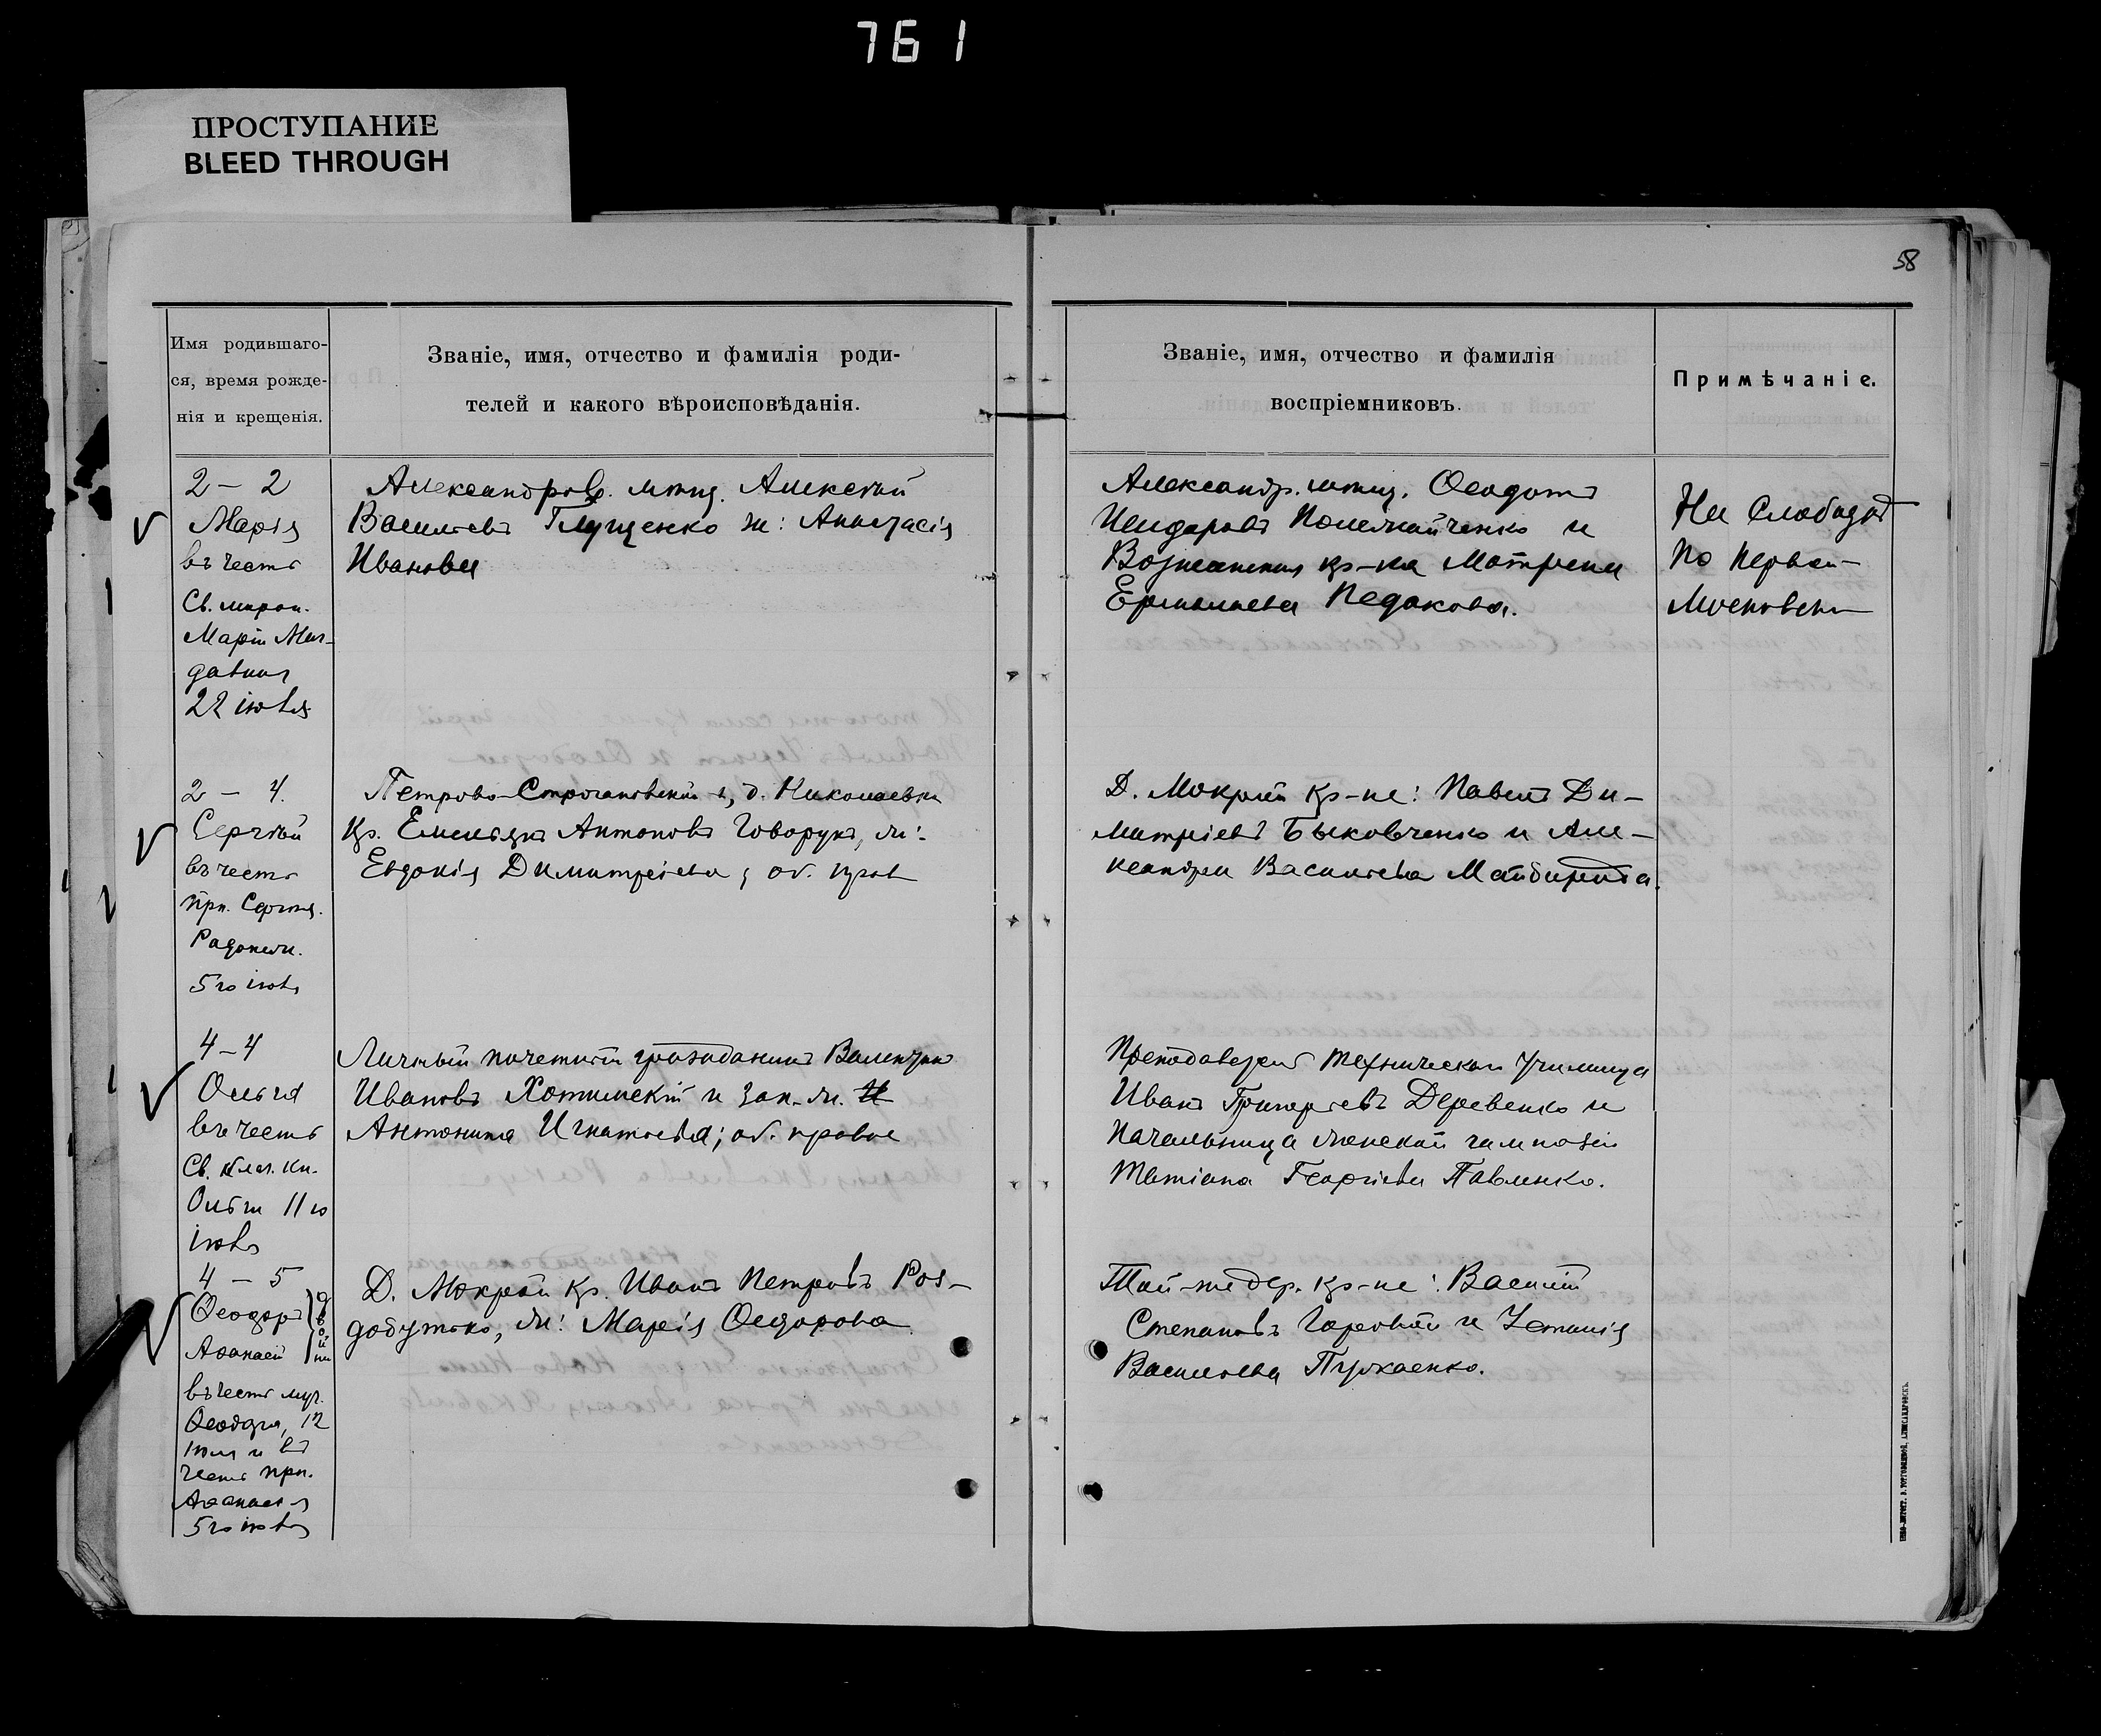 761
ПРОСТУПАНИЕ
BLEED THROUGH
58
Имя родившаго-
ся, время рожде-
нія и крещенія.
Званіе, имя, отчество и фамилія роди-
телей и какого вѣроисповѣданія.
Званіе, имя, отчество и фамилія
воспріемниковъ.
Примѣчаніе.
2 – 2
Марія
въ честь
Св. мирон.
Маріи Маг-
далин
22 іюля
Александров. мѣщ. Алексѣй
Васильевъ Глущенко ж: Анастасія
Иванова
Александр. мѣщ. Ѳеодотъ
и
Вознесенская кр-ка Матрена
Ермолаева Педакова.
На Слободѣ
по первой
Московской
2 – 4.
Сергѣй
въ честь
прп. Сергія
Радонеж.
5го іюля
Петрово-Строгановской в, д. Николаевки
Кр. Антоновъ Говорунъ, ж:
Евдокія Димитріева; об. прав
Д. Мокрой Кр-не: Павелъ Ди-
митріевъ Быковченко и Але-
ксандра Васильева
4–4
Ольга
въ честь
Св. благ. кн.
Ольги 11 го
іюля
Личный почетный гражданинъ Валентинъ
Ивановъ Хотинскій и зак. ж.
Антонина Игнатьева; об. правос
Преподаватель техническаго училища
Иванъ Григорьевъ Деревенко и
начальница женской гимназіи
Татіана Георгіева Павленко.
4 – 5
Ѳеодоръ
Аѳанасій
двойни
въ честь муч.
Ѳеодора, 12
іюля и въ
честь прп.
Аѳанасія
5го іюля
Д. Мокрой Кр. Иванъ Петровъ Роз-
добутько, ж: Марія Ѳедорова
Той-же дер. кр-не: Василій
Степановъ Горовой и
Васильева Пужаенко.